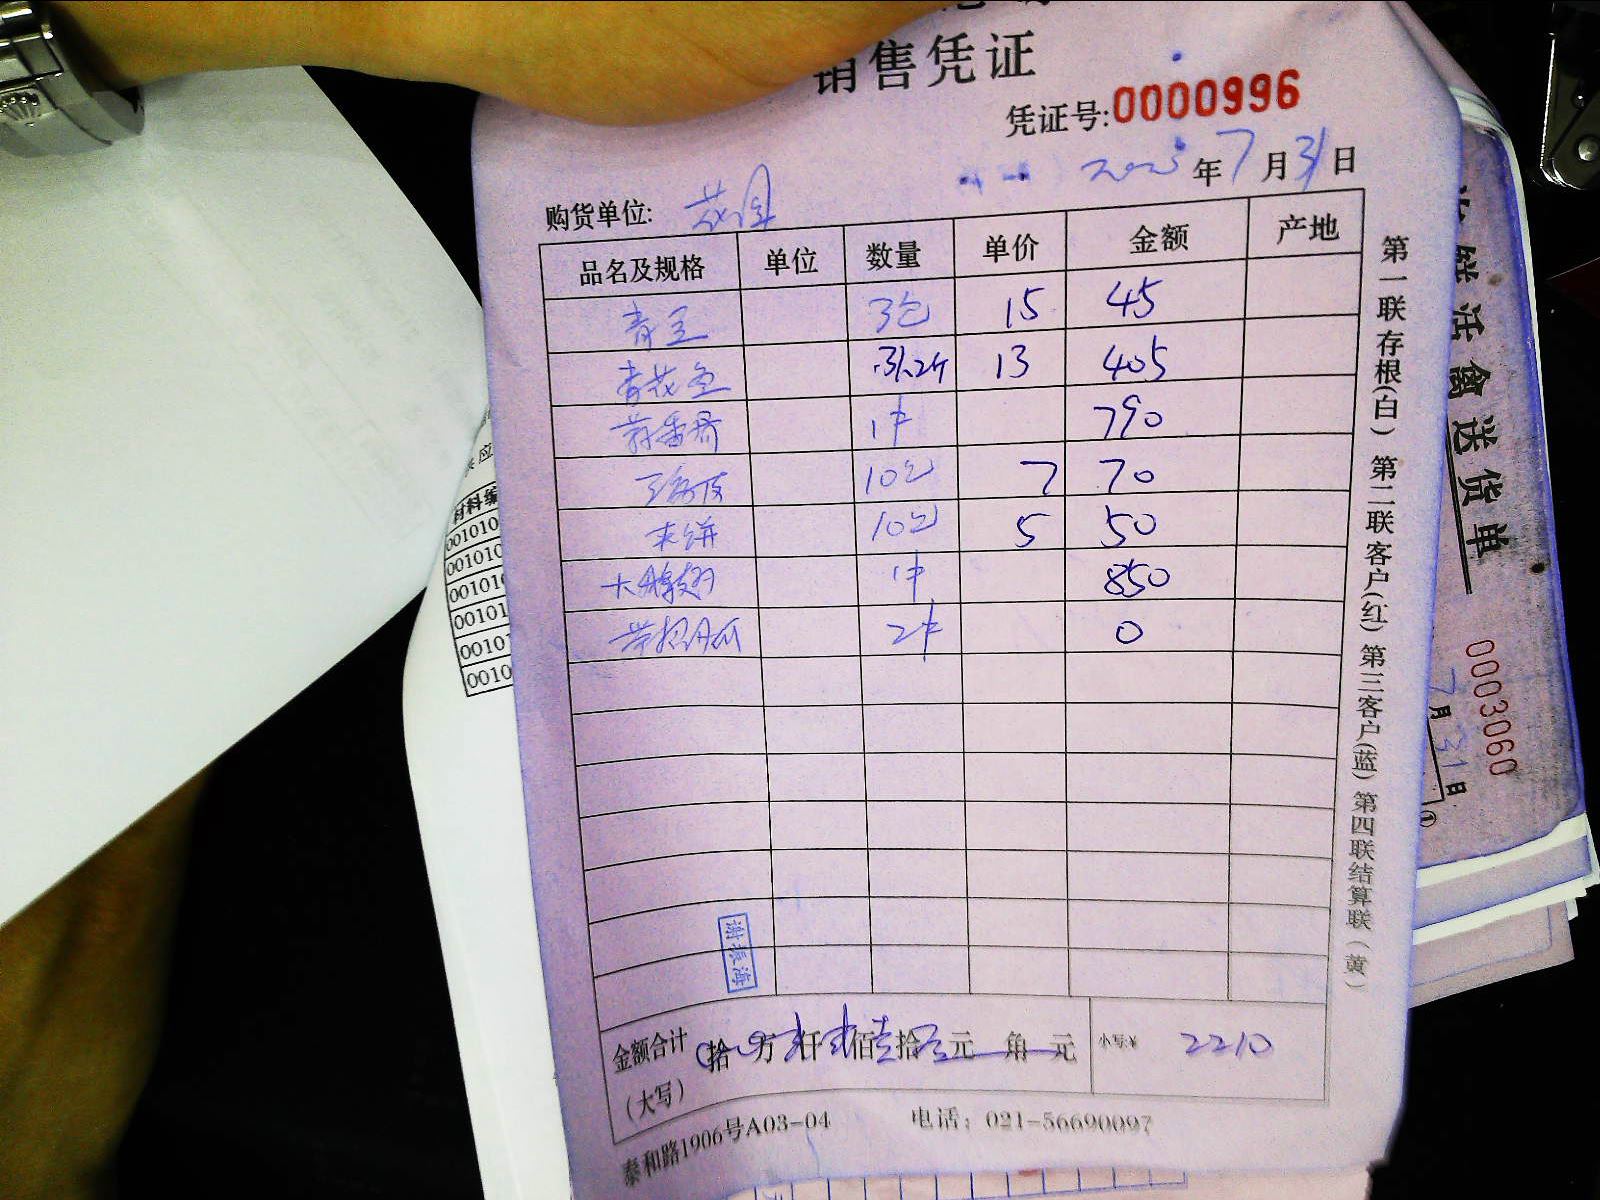 销售凭证
凭证号:0000996
2023年7月31日
购货单位: 花园
品名及规格 单位 数量 单价 金额 产地
青豆 3包 15 45
青花鱼 31.2斤 13 405
1件 790
10包 7 70
夹饼 10包 5 50
大鹅翅 1件 850
2件 0
谢振海
金额合计 拾 万 仟 佰壹拾 元 角 元 小写:¥ 2210
(大写)
泰和路1906号A03-04 电话: 021-56690097
第一联存根(白) 第二联客户(红) 第三客户(蓝) 第四联结算联(黄)
活禽送货单
0003060
7月31日
①
应
材料编
001010
001010
001010
00101
00101
0010